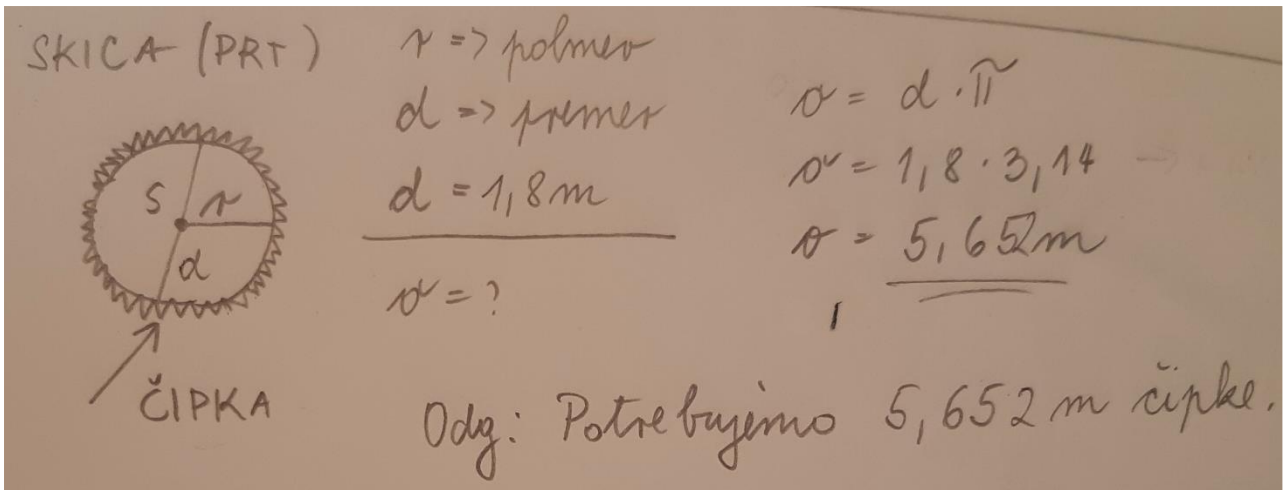 SKICA (PRT)
S r
d
ČIPKA
r => polmer
d => premer
d = 1,8 m
o = ?
o = d · π
o = 1,8 · 3,14
o = 5,652 m
Odg: Potrebujemo 5,652 m čipke.